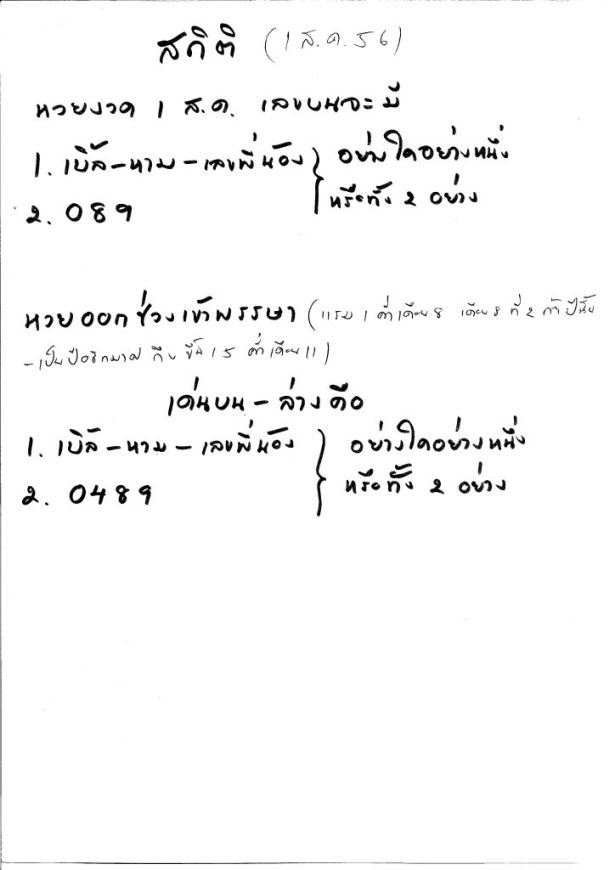 สถิติ (1 ส.ค. 56)
หวยงวด 1 ส.ค. เลขบนจะมี
1. เบิ้ล-หาม-เลขพี่น้อง } อย่างใดอย่างหนึ่ง
2. 089 หรือทั้ง 2 อย่าง
หวยออกช่วงเข้าพรรษา (แรม 1 ค่ำเดือน 8 เดือน 8 ที่ 2 ถ้าปีนั้น
-เป็นปีอธิกมาส ถึง ขึ้น 15 ค่ำ เดือน 11)
เด่นบน - ล่างคือ
1. เบิ้ล-หาม-เลขพี่น้อง } อย่างใดอย่างหนึ่ง
2. 0489 หรือทั้ง 2 อย่าง